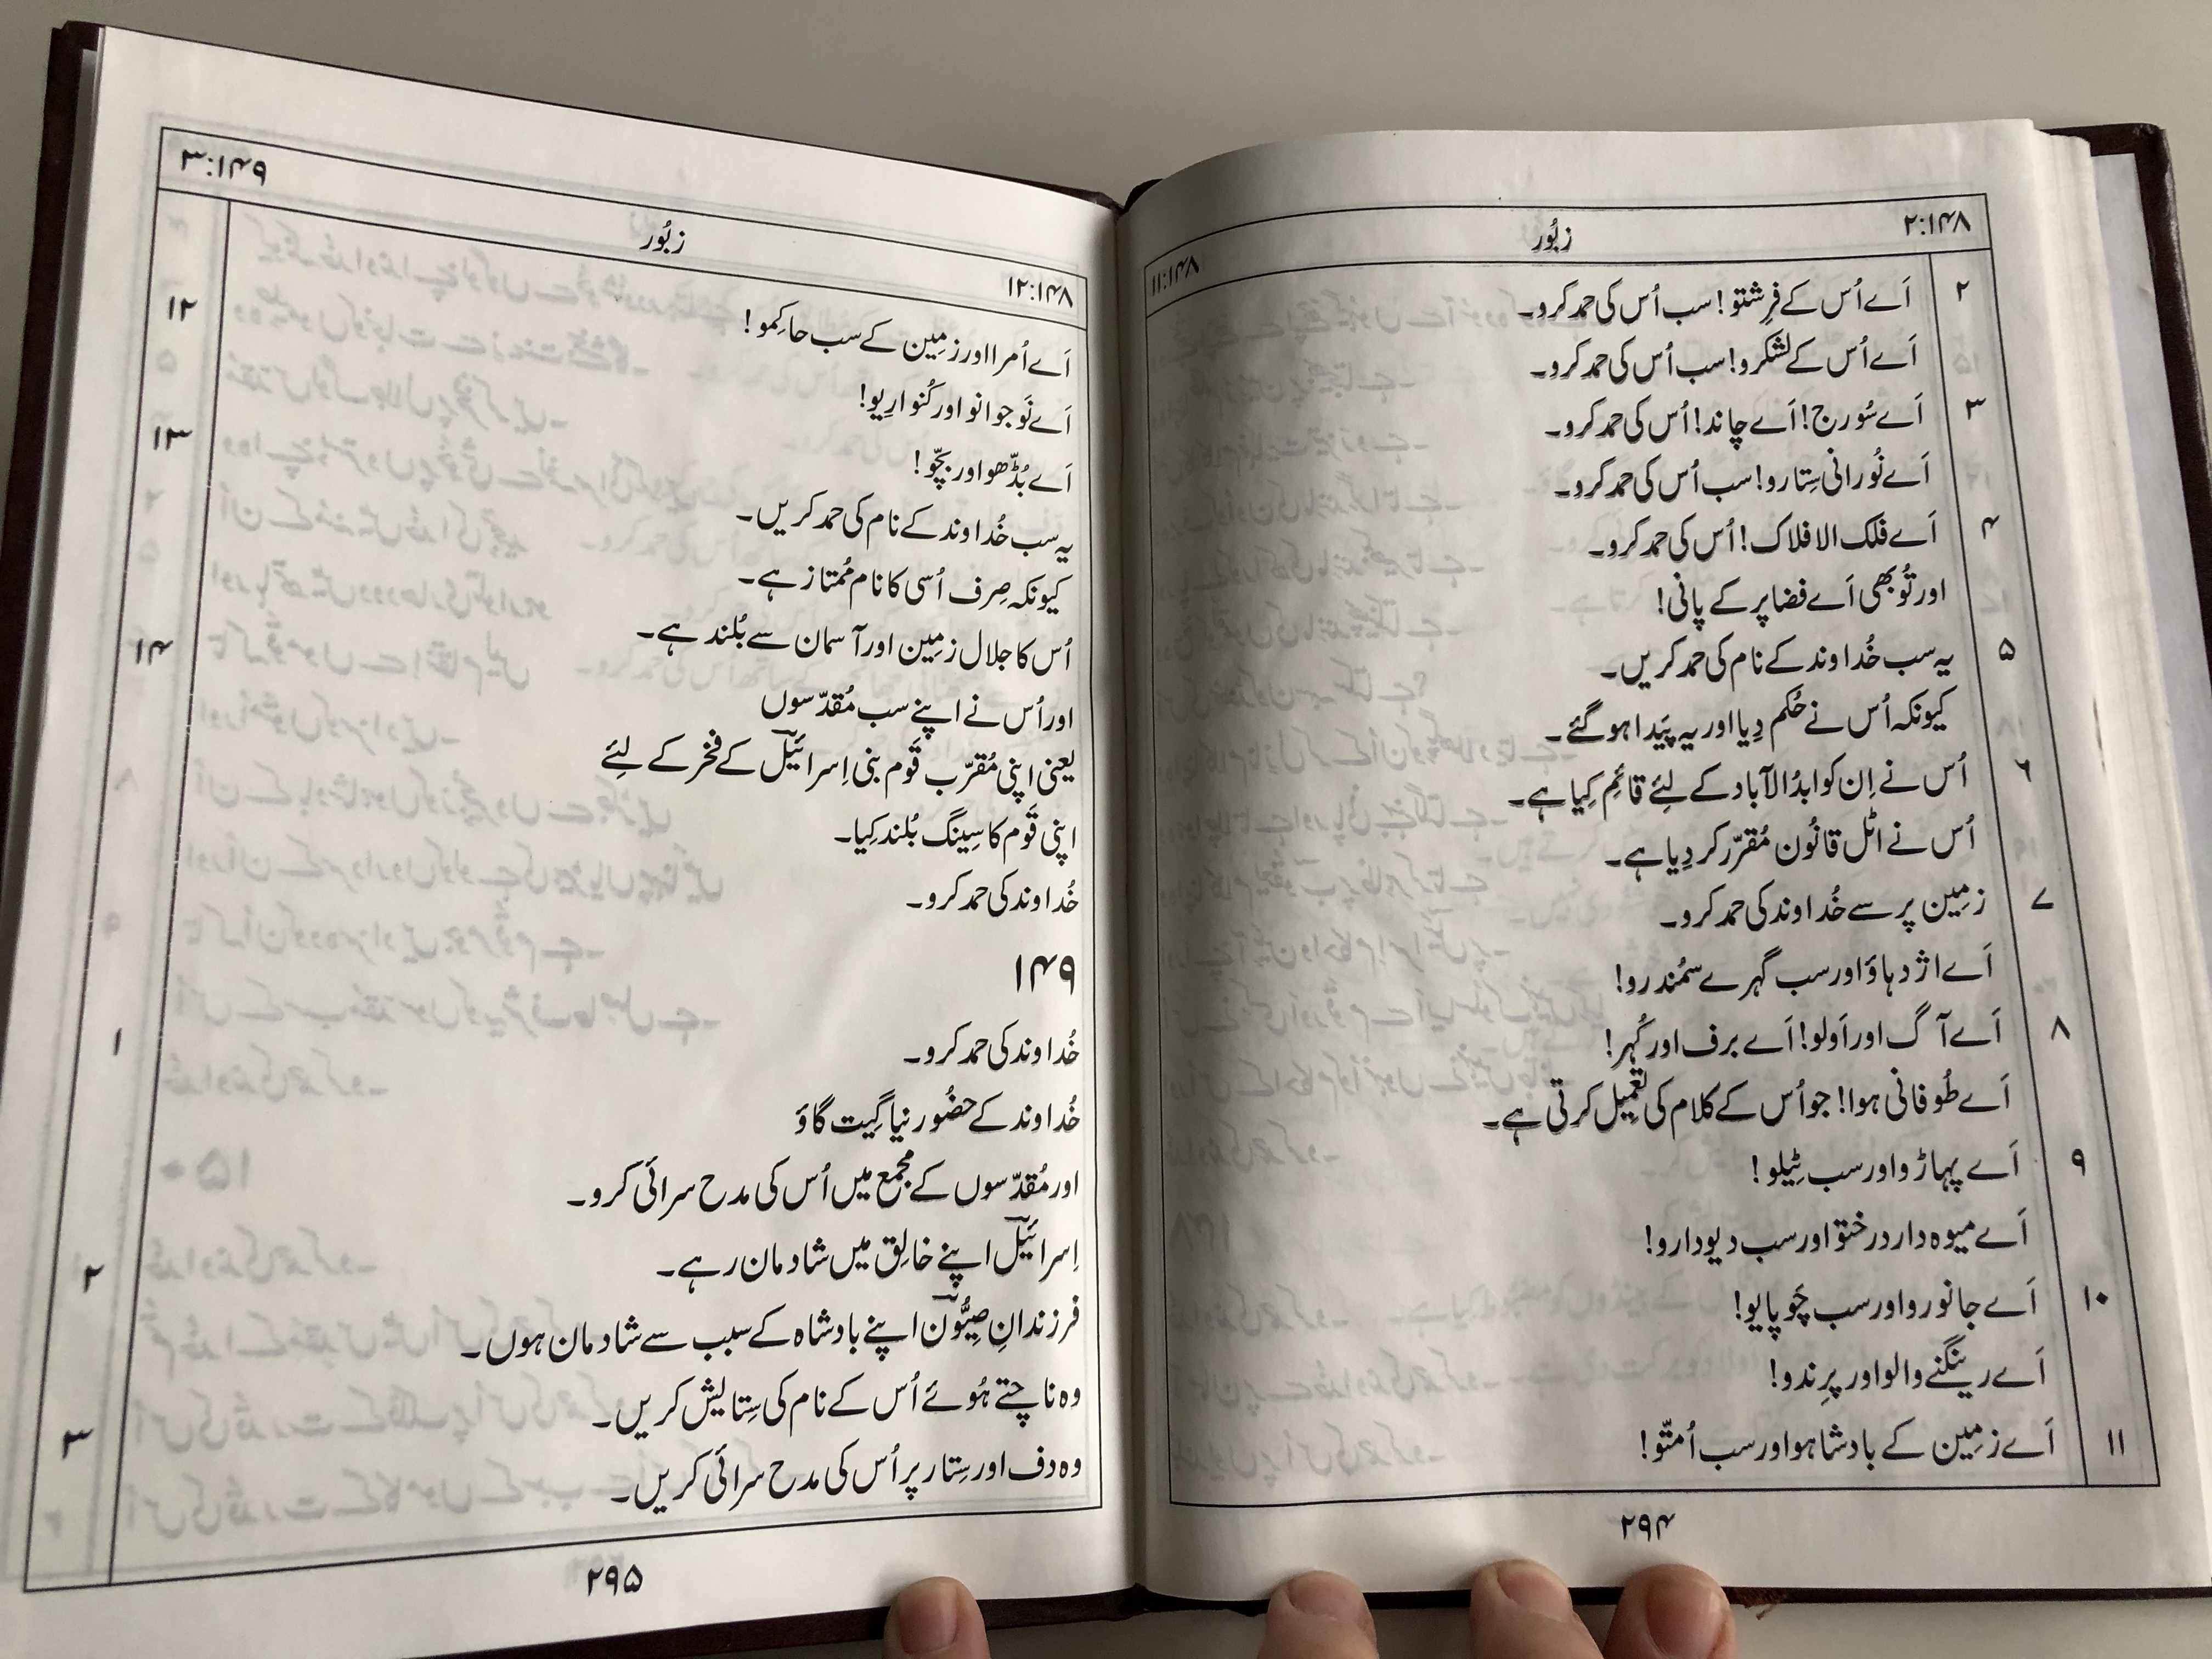 ۲:۱۴۸
زبُور
۱۱:۱۴۸
۲ اَے اُس کے فرِشتو! سب اُس کی حمد کرو۔
اَے اُس کے لشکرو! سب اُس کی حمد کرو۔
۳ اَے سُورج! اَے چاند! اُس کی حمد کرو۔
اَے نُورانی سِتارو! سب اُس کی حمد کرو۔
۴ اَے فلک الافلاک! اُس کی حمد کرو۔
اور تُو بھی اَے فضا پر کے پانی!
۵ یہ سب خُداوند کے نام کی حمد کریں۔
کیونکہ اُس نے حُکم دِیا اور یہ پَیدا ہو گئے۔
۶ اُس نے اِن کو ابدُالآباد کے لِئے قائِم کِیا ہے۔
اُس نے اٹل قانُون مُقرّر کر دِیا ہے۔
۷ زمِین پر سے خُداوند کی حمد کرو۔
اَے اژدہاؤ اور سب گہرے سمُندرو!
۸ اَے آگ اور اَولو! اَے برف اور کُہر!
اَے طُوفانی ہوا! جو اُس کے کلام کی تعمِیل کرتی ہے۔
۹ اَے پہاڑو اور سب ٹِیلو!
اَے میوہ دار درختو اور سب دیودارو!
۱۰ اَے جانورو اور سب چَوپایو!
اَے رینگنے والو اور پرِندو!
۱۱ اَے زمِین کے بادشاہو اور سب اُمتّو!
۲۹۴
۱۲:۱۴۸
زبُور
۳:۱۴۹
اَے اُمرا اور زمِین کے سب حاکِمو!
۱۲ اَے نَوجوانو اور کُنواریو!
اَے بُڈّھو اور بچّو!
۱۳ یہ سب خُداوند کے نام کی حمد کریں۔
کیونکہ صِرف اُسی کا نام مُمتاز ہے۔
اُس کا جلال زمِین اور آسمان سے بُلند ہے۔
۱۴ اور اُس نے اپنے سب مُقدّسوں
یعنی اپنی مُقرّب قَوم بنی اِسرائیل کے فخر کے لِئے
اپنی قَوم کا سِینگ بُلند کِیا۔
خُداوند کی حمد کرو۔
۱۴۹
۱ خُداوند کی حمد کرو۔
خُداوند کے حضُور نیا گِیت گاؤ
اور مُقدّسوں کے مجمع میں اُس کی مدح سرائی کرو۔
۲ اِسرائیل اپنے خالِق میں شادمان رہے۔
فرزندانِ صِیُّون اپنے بادشاہ کے سبب سے شادمان ہوں۔
۳ وہ ناچتے ہُوئے اُس کے نام کی سِتایش کریں۔
وہ دف اور سِتار پر اُس کی مدح سرائی کریں۔
۲۹۵